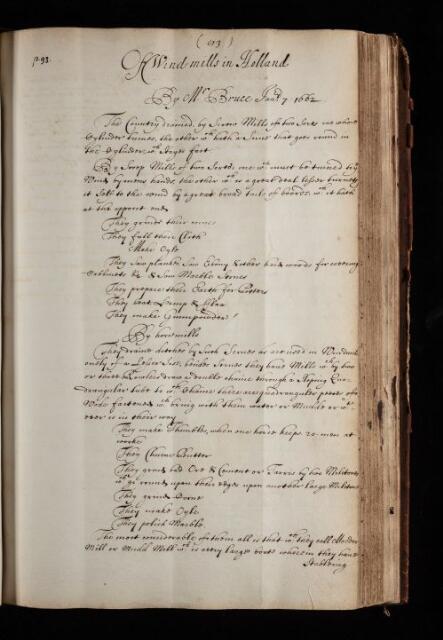 (213)
p. 93.
Of Wind mills in Holland
By Mr Bruce Janry 7 1662
The Country drained by Screw Mills of two sorts one whose
Cylinder turnes, the other wch hath a Screw that goes round in
the Cylinder, wch stays fast
By Scoop Mills of two Sorts, one wch must be turned to ye
Wind by mens hands, the other wch is a great deal lesser turneth
it Self to the wind by a great broad taile of boords wch it hath
at the opposit end
They grinde their corne
They full their Cloth
Make Oyle
They Saw planks, Saw Ebony & other hard woods for covering
Cabbinets & & Saw Marble Stones
They prepare their Earth for Potters
They beat Hemp &
They make Gunnpowder
By horsmills
They draine ditches by Such Screws as are used in Windmills
onely of a Lesser Size, besides Screws they have Mills wch by two
or three draw a double chaine through a Sloping Qua-
drangular tube to wch Chaine there are quadrangular peeces of
Wood fastened wch bring with them water or Mudd or wt
ever is in their way
They make Thimbles, when one horse keeps 20 men at
worke
They Churne Butter
They grind bad Ore & Ciment or Tarras by two Milstones
wch go round upon their edges upon another large Milstone
They grind Corne
They make Oyle
They polish Marble
The most considerable of them all is that wch they call Modder
Mill or Mudd Mill wch is a very large boate wherein they have
Stabbing